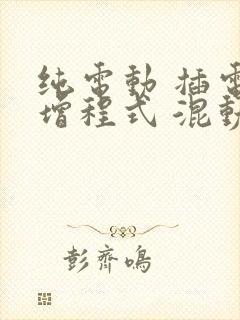 纯電動 插電
增程式 混動
彭齊鳴